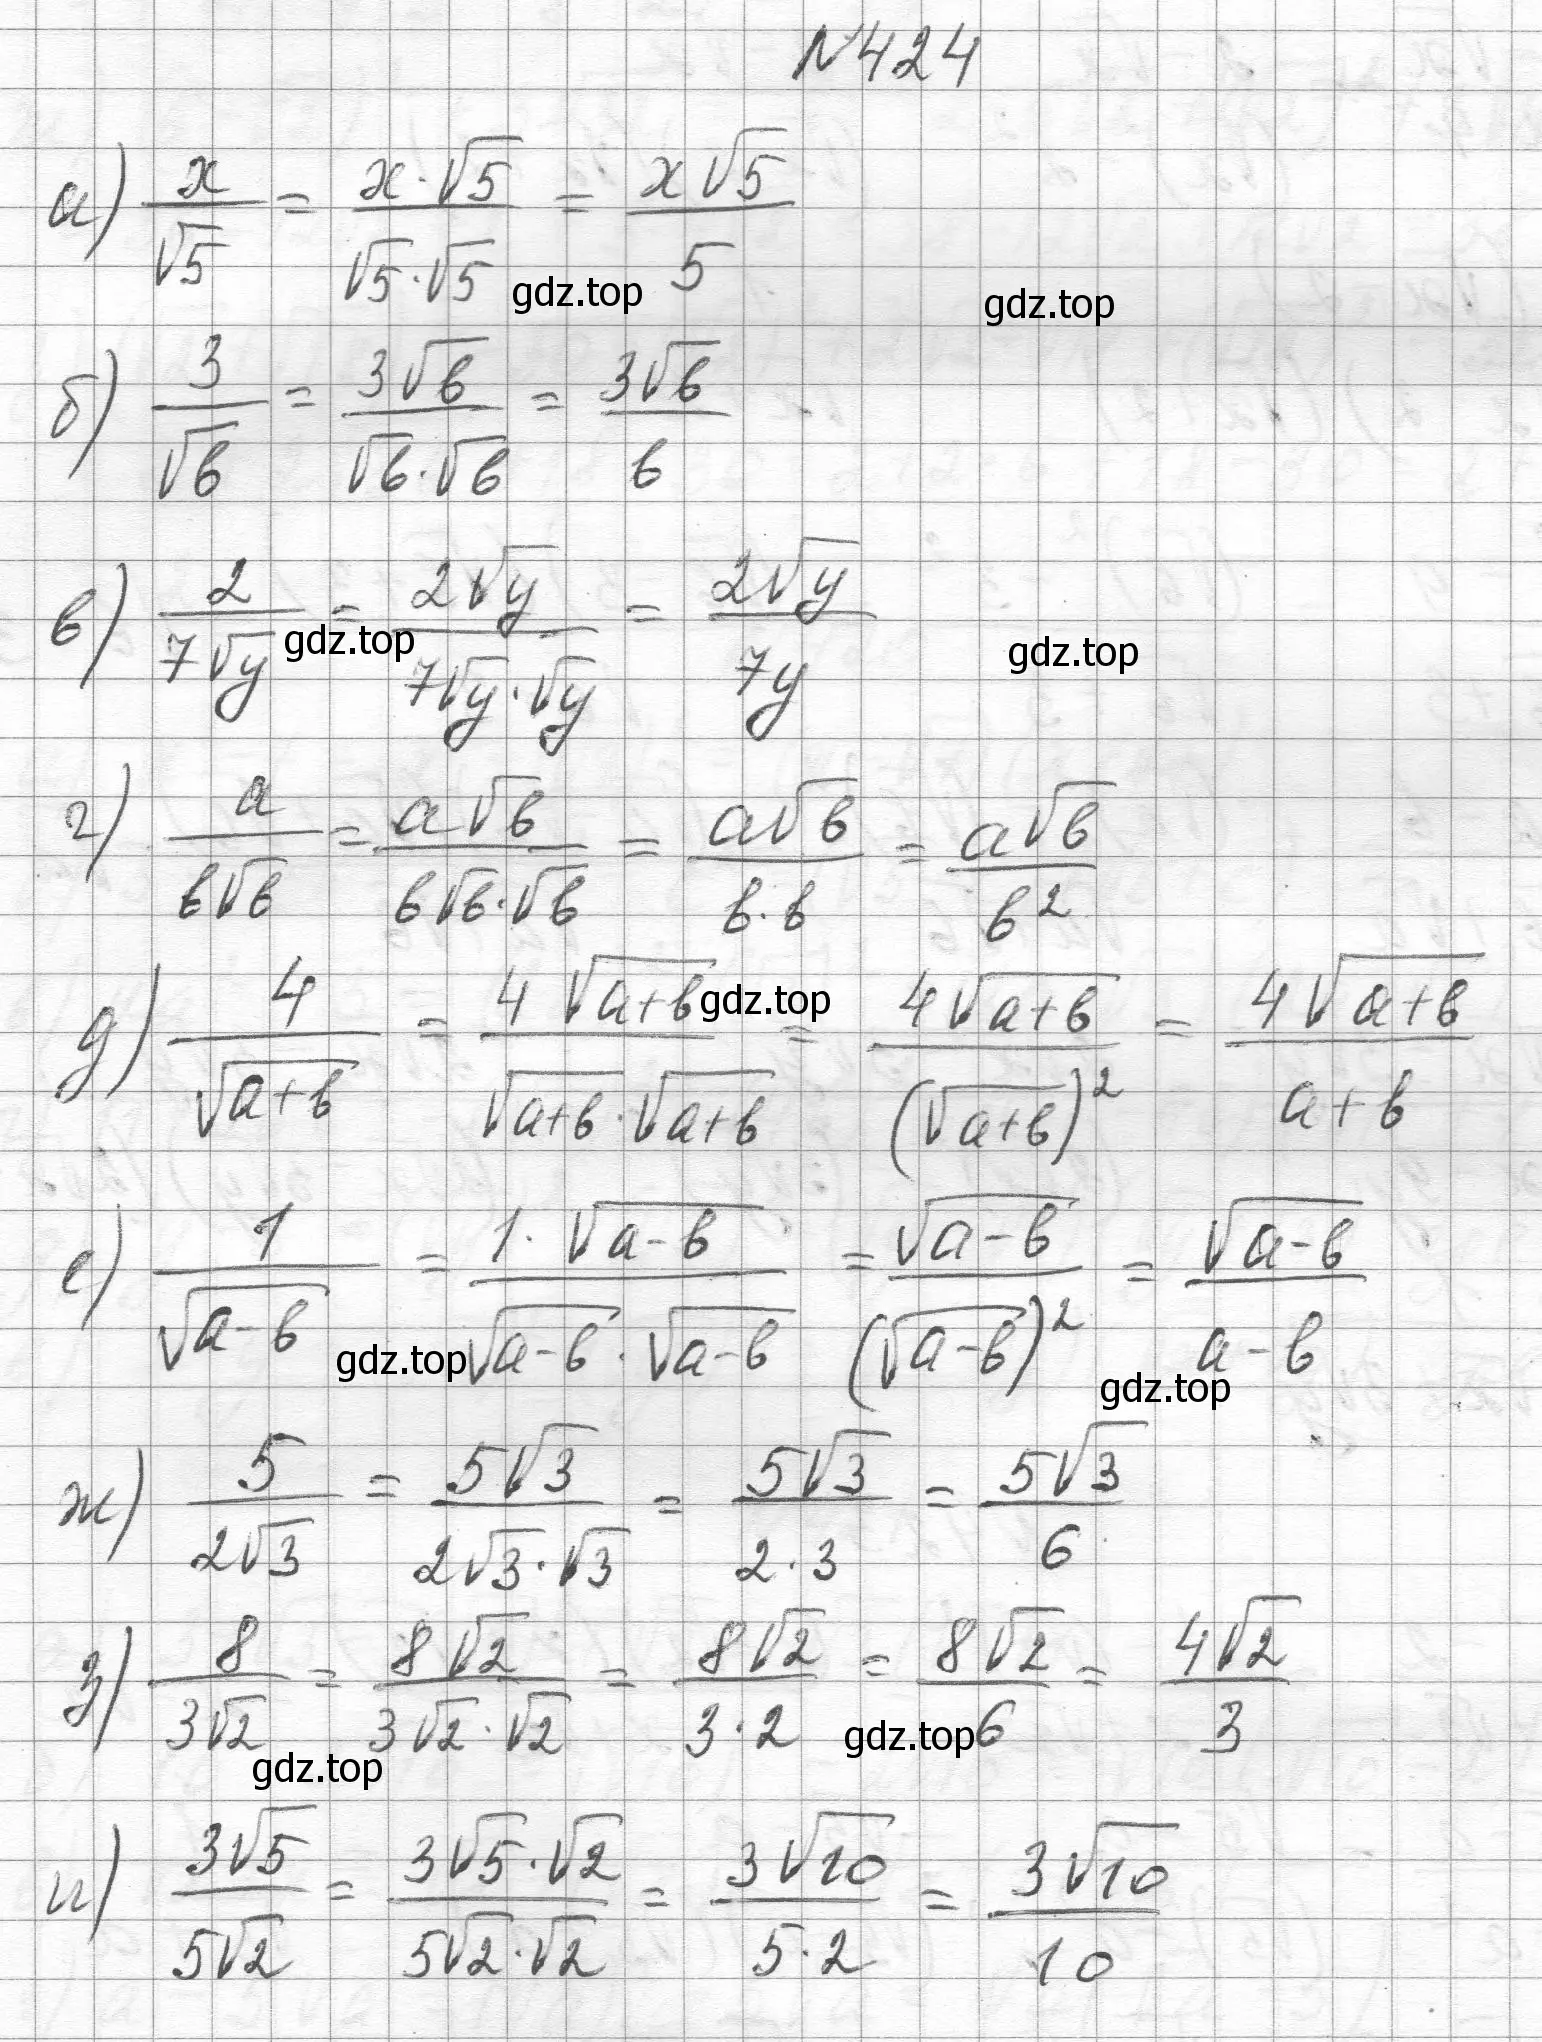 N424
а) x/√5 = x·√5/√5·√5 = x√5/5
gdz.top gdz.top
б) 3/√b = 3√b/√b·√b = 3√b/b
в) 2/7√y = 2√y/7√y·√y = 2√y/7y
gdz.top gdz.top
г) a/b√b = a√b/b√b·√b = a√b/b·b = a√b/b²
д) 4/√(a+b) = 4√(a+b)/√(a+b)·√(a+b) = 4√(a+b)/(√(a+b))² = 4√(a+b)/a+b
gdz.top
е) 1/√(a-b) = 1·√(a-b)/√(a-b)·√(a-b) = √(a-b)/(√(a-b))² = √(a-b)/a-b
gdz.top gdz.top
ж) 5/2√3 = 5√3/2√3·√3 = 5√3/2·3 = 5√3/6
з) 8/3√2 = 8√2/3√2·√2 = 8√2/3·2 = 8√2/6 = 4√2/3
gdz.top gdz.top
и) 3√5/5√2 = 3√5·√2/5√2·√2 = 3√10/5·2 = 3√10/10